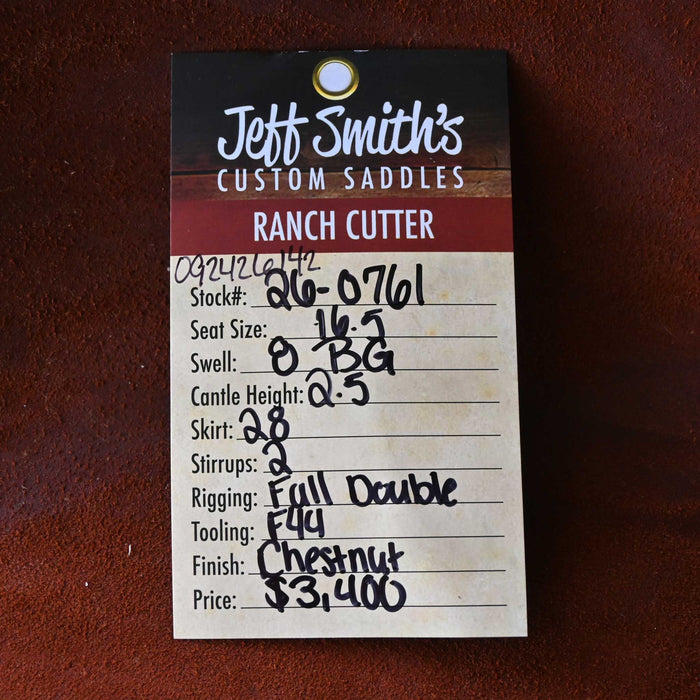 Jeff Smith's
CUSTOM SADDLES
RANCH CUTTER
0924266142
Stock#: 26-0761
Seat Size: 16.5
Swell: O BG
Cantle Height: 2.5
Skirt: 28
Stirrups: 2
Rigging: Full Double
Tooling: F44
Finish: Chestnut
Price: $3,400